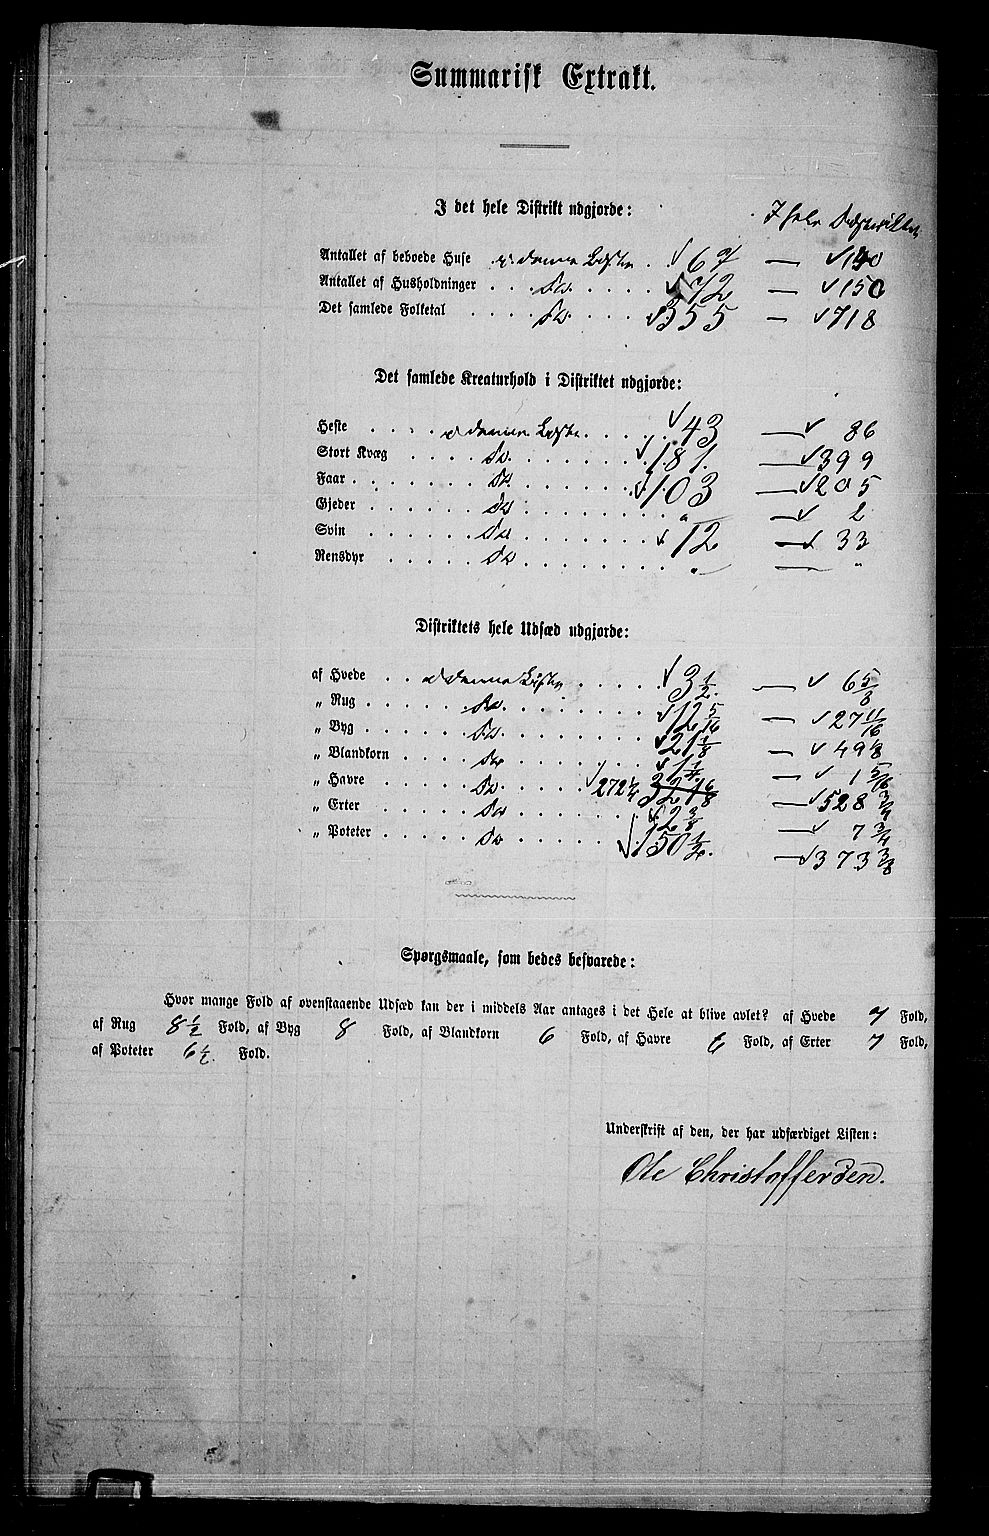 Summarisk Extrakt.
I det hele Distrikt udgjorde: I hele Districktet
Antallet af beboede Huse . i denne Liste . . √ 67 — √ 140
Antallet af Husholdninger . . . Do . . . . . √ 72 — √ 150
Det samlede Folketal . . . . Do . . . . √ 355 — √ 718
Det samlede Kreaturhold i Distriktet udgjorde:
Heste . . . . i denne Liste . . . . √ 43 — √ 86
Stort Kvæg . . . . Do . . . . . . √ 181. — √ 399
Faar . . . . . . Do . . . . . . √ 103 — √ 205
Gjeder . . . . . Do . . . . . . „ — √ 2
Svin . . . . . Do . . . . . . √ 12 — √ 33
Rensdyr . . . . . Do . . . . . . „ — „
Distriktets hele Udsæd udgjorde:
af Hvede . . i denne Liste . . . . . √ 3 1/2. — √ 6 5/8
„ Rug . . . . . Do . . . . . . √ 12 5/16 — √ 27 11/16
„ Byg . . . . . Do . . . . . . √ 21 1/8 — √ 49 1/8
„ Blandkorn . . . . Do . . . . . . √ 1 1/4. — √ 1 5/16
„ Havre . . . . . Do . . . . √ 272 1/4 — √ 528 3/4
„ Erter . . . . . Do . . . . . . √ 12 3/8 — √ 7 3/4
„ Poteter . . . . . Do . . . . . √ 150 1/2. — √ 373 3/8
Spørgsmaale, som bedes besvarede:
Hvor mange Fold af ovenstaaende Udsæd kan der i middels Aar antages i det Hele at blive avlet? af Hvede 7 Fold,
af Rug 8 1/2 Fold, af Byg 8 Fold, af Blandkorn 6 Fold, af Havre 6 Fold, af Erter 7 Fold,
af Poteter 6 1/2 Fold.
Underskrift af den, der har udfærdiget Listen:
Ole Christoffersen.